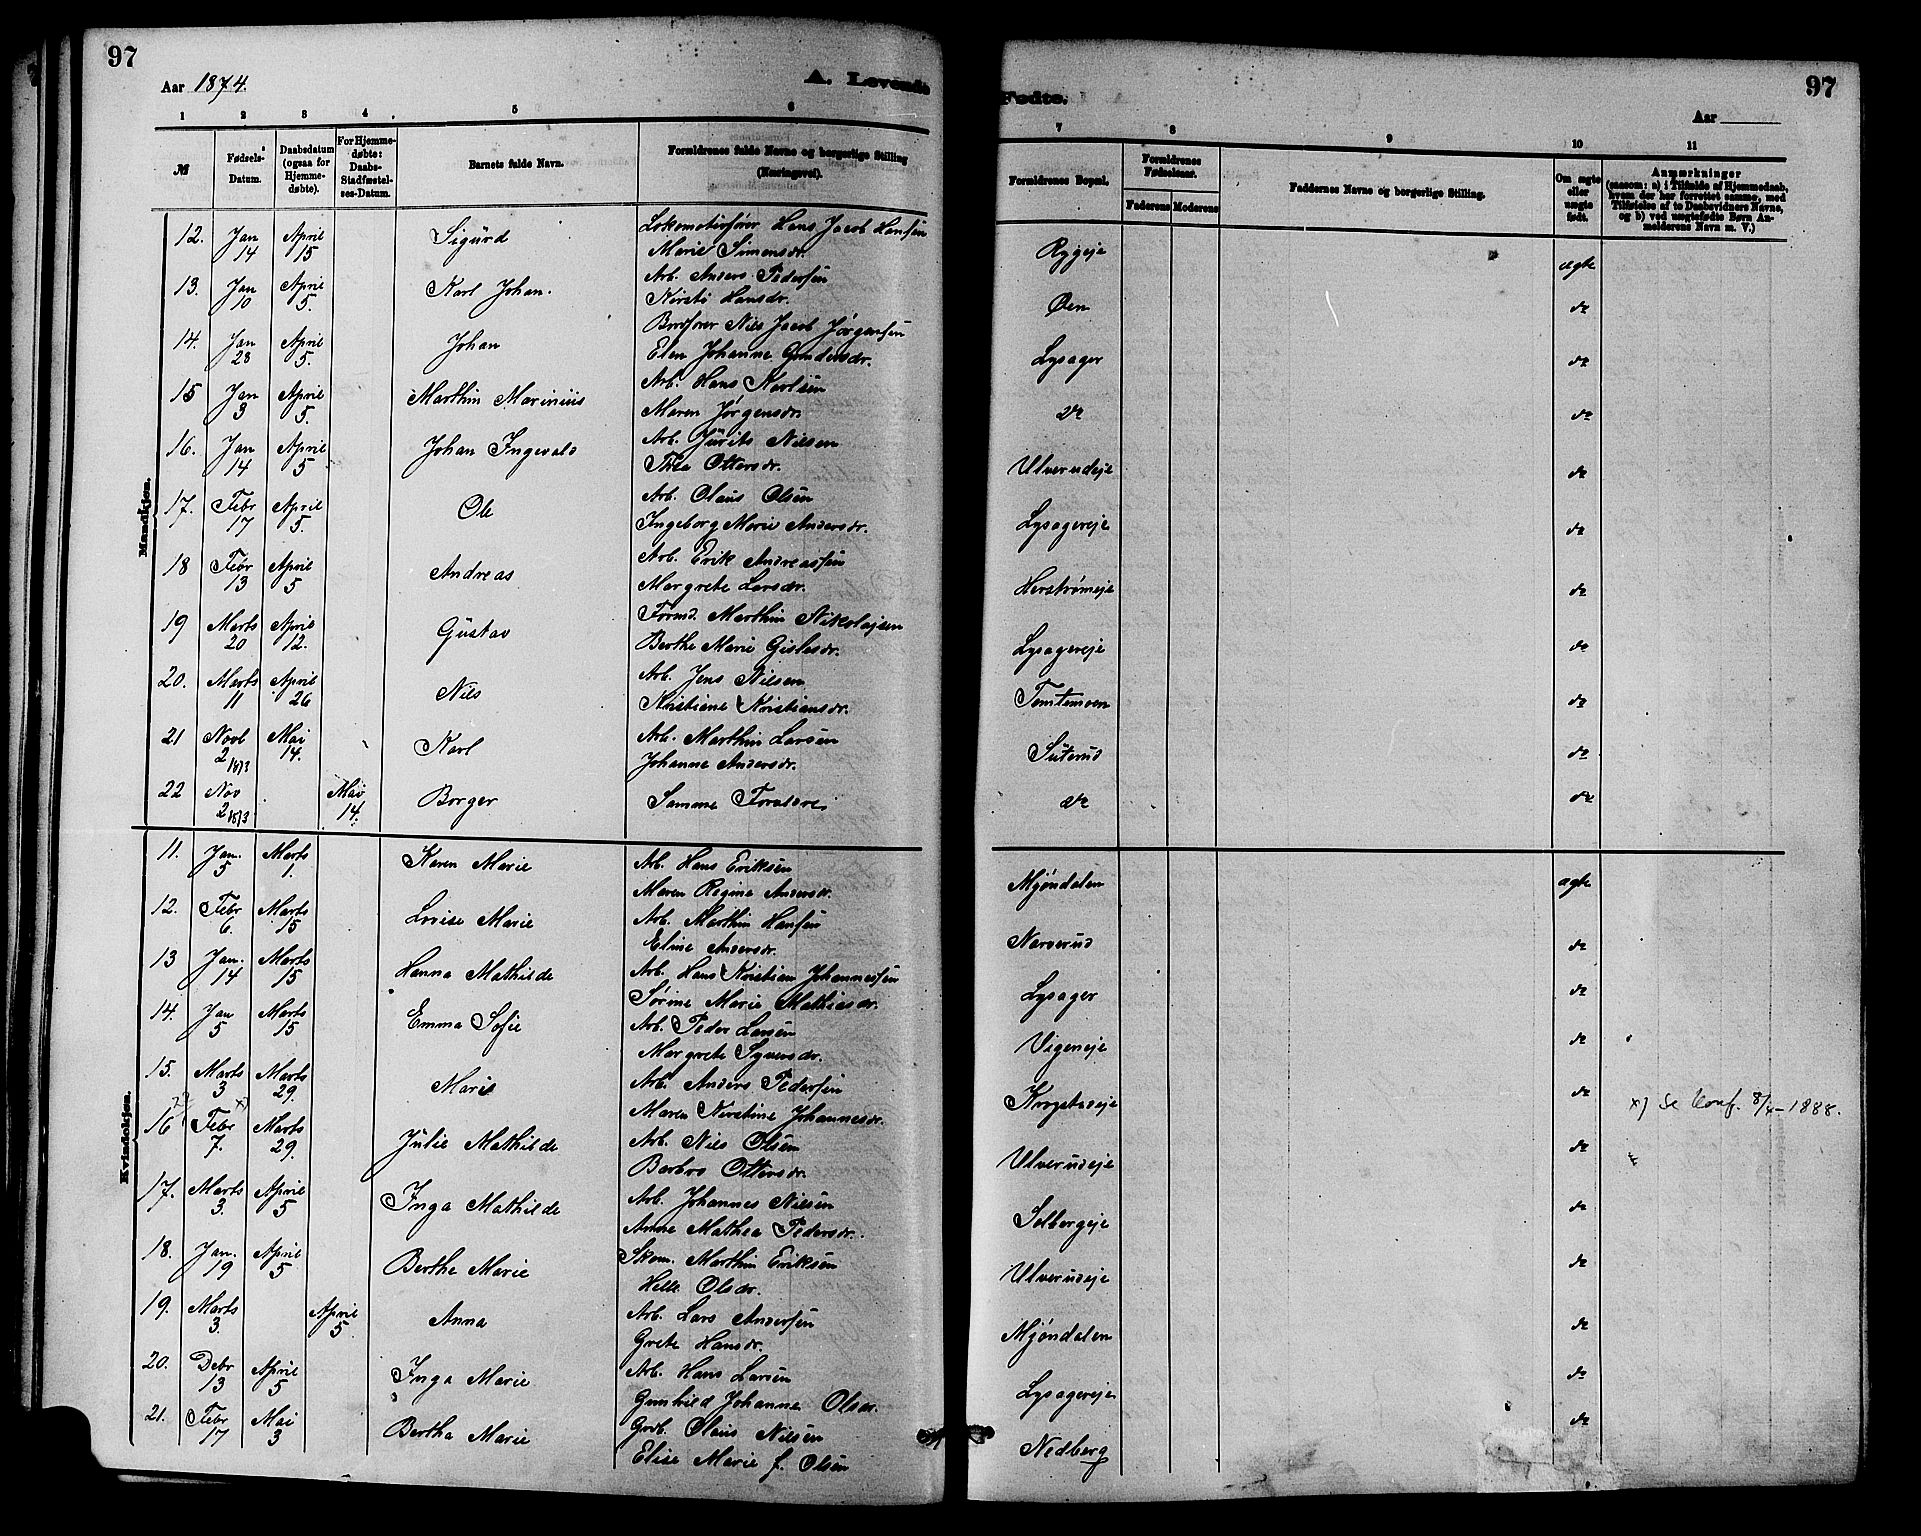 97
Aar 1874.
A. Levende
1 2 3 4 5 6
№
Fødsels-Datum.
Daabsdatum (ogsaa for Hjemmedøbte).
For Hjemmedøbte: Daabs-Stadfæstelses-Datum.
Barnets fulde Navn.
Forældrenes fulde Navne og borgerlige Stilling (Næringsvei).
Mandkjøn.
12. Jan 14 April 15 Sigurd Lokomotivfører Hans Jacob Hansen
Marie Simensdr.
13. Jan 10 April 5. Karl Johan. Arb. Anders Pedersen
Kirsti Hansdr.
14. Jan 28 April 5. Johan Nils Jacob Jørgensen
Elen Johanne Gundersdr.
15 Jan 3 April 5. Marthin Marinius Arb. Hans Karlsen
Maren Jørgensdr.
16. Jan 14 April 5 Johan Ingevald Arb. Nilsen
Thea Ottersdr.
17. Febr 17 April 5. Ole Arb. Olaus Olsen
Ingeborg Marie Andersdr.
18 Febr 13 April 5 Andreas Arb. Erik Andreassen
Margrete Larsdr.
19 Marts 20 April 12. Gustav Formd. Marthin Nikolajsen
Berthe Marie Gislesdr.
20. Marts 11 April 26 Nils Arb. Jens Nilsen
Kristiane Kristiansdr.
21 Novb 2 1873 Mai 14. Karl Arb. Marthin Larsen
Johanne Andersdr.
22 Nov 2 1873 Mai 14. Borger Samme Forældre
Kvindekjøn.
11. Jan. 5 Marts 1. Karen Marie Arb. Hans Eriksen
Maren Regine Andersdr.
12. Febr 6. Marts 15 Lovise Marie Arb. Marthin Hansen
Eline Andersdr.
13 Jan. 14 Marts 15 Hanna Mathilde Arb. Hans Kristian Johannessen
Sørine Marie Mathiasdr.
14. Jan 5 Marts 15 Emma Sofie Arb. Peder Larsen
Margrete Syversdr.
15. Marts 3 Marts 29. Marie Arb. Anders Pedersen
Maren Kirstine Johannesdr.
16 Febr x) 7. Marts 29. Julie Mathilde Arb. Nils Olsen
Barbro Ottersdr.
17. Marts 3. April 5 Inga Mathilde Arb. Johannes Nilsen
Anne Mathea Pedersdr.
18. Jan. 19 April 5 Berthe Marie Skom. Marthin Eriksen
Helle Olsdr.
19. Marts 3. April 5. Anna Arb. Lars Andersen
Grete Hansdr.
20. Debr 13 April 5 Inga Marie Arb. Hans Larsen
Gunhild Johanne Olsdr.
21. Febr 17 Mai 3 Bertha Marie Grdb. Olaus Nilsen
Elise Marie f. Olsen
Fødte.
97
Aar
7 8 9 10 11
Forældrenes Bopæl.
Forældrenes Fødselsaar.
Faderens Moderens
Faddernes Navne og borgerlige Stilling.
Om ægte eller uægte født.
Anmærkninger (saasom: a) i Tilfælde af Hjemmedaab, hvem der har forrettet samme, med Tilføielse af to Daabsvidners Navne, og b) ved uægtefødte Børn Anmelderens Navn m. V.)
Ryggeje ægte
Øen do
Lysager do
do do
Ulverudeje do
Lysagereje do
Herstrømeje do
Lysagereje do
Tomtemoen do
Suterud do
do do
Mjøndalen ægte
Narverud do
Lysager do
Vigeneje do
Krogstadeje do
x) se konf. 8/4-1888.
Ulverudeje do
Solbergeje do
Ulverudeje do
Mjøndalen do
Lysagereje do
Nedberg do